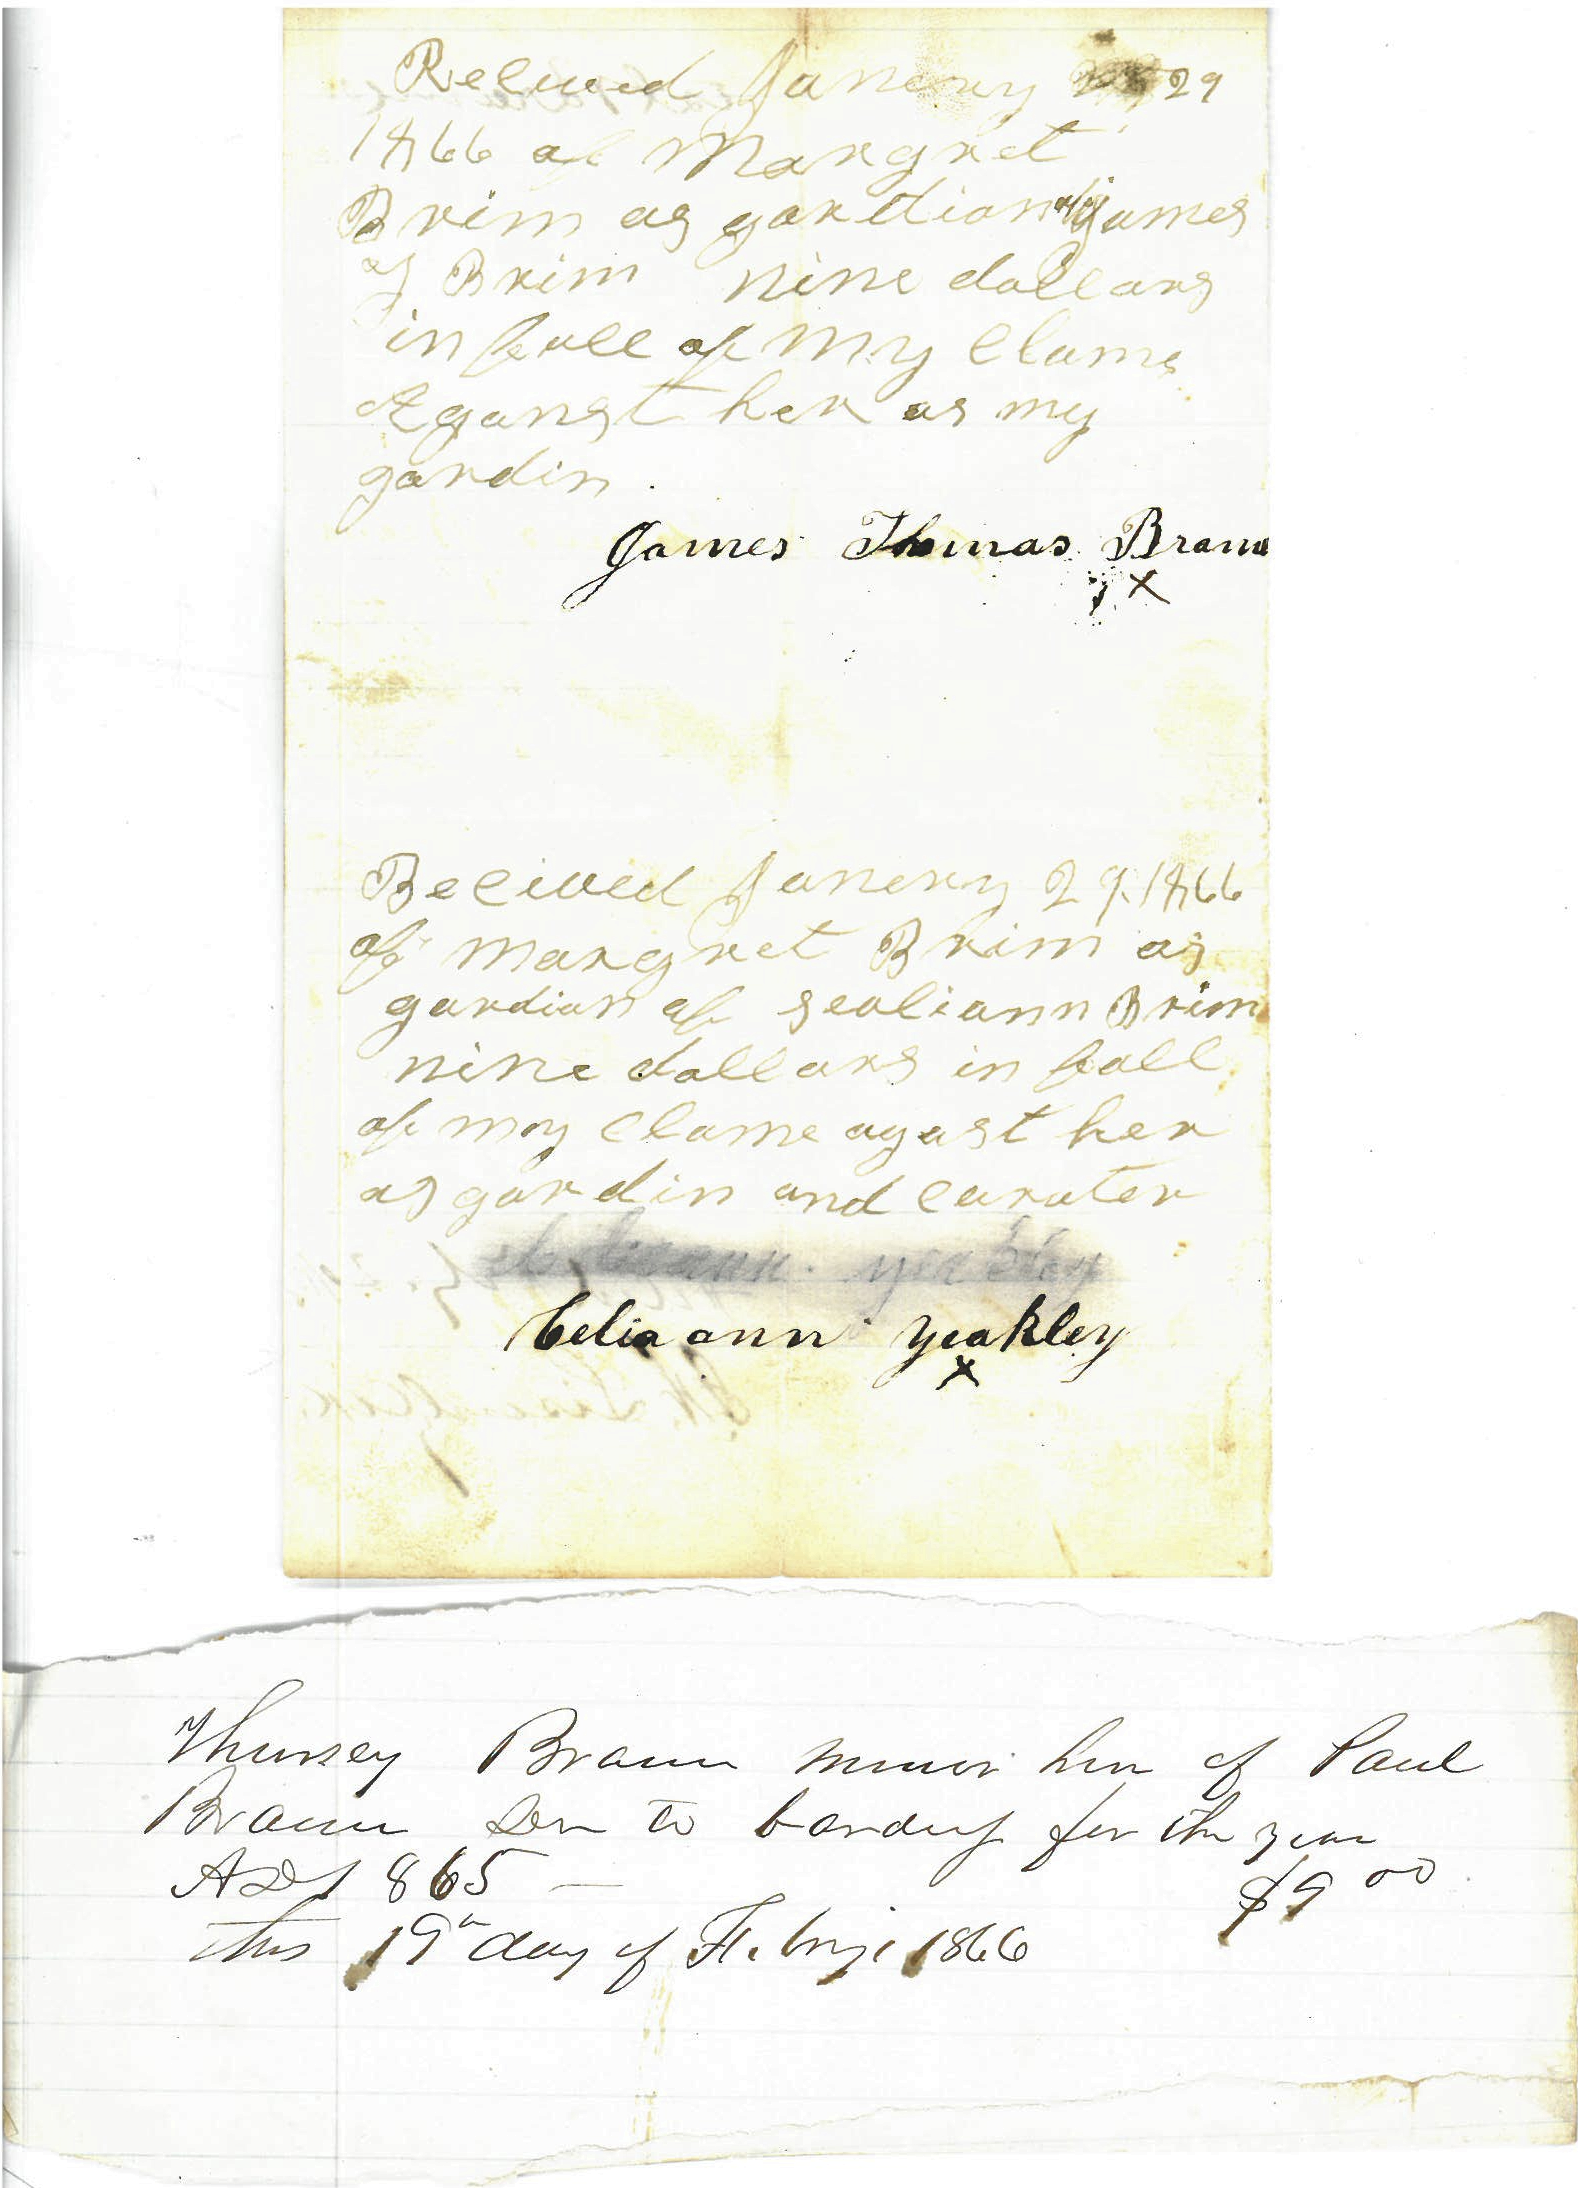 Recived Janery 29
1866 of Margret
Brim as gardian of James
Brim nine dollars
in full of my Clame
Aganst her as my
gardin.
James Thomas Braun
x
Recived Janery 29. 1866
of Margret Brim as
gardian of sealiann Brim
nine dollars in full
of my Clame agast her
as gardin and carater
yeakley
Celia ann yeakley
x
Thursey Braun minor heir of Paul
Braun Dr to bording for the year
AD 1865 — $9 00
this 19th day of 1866